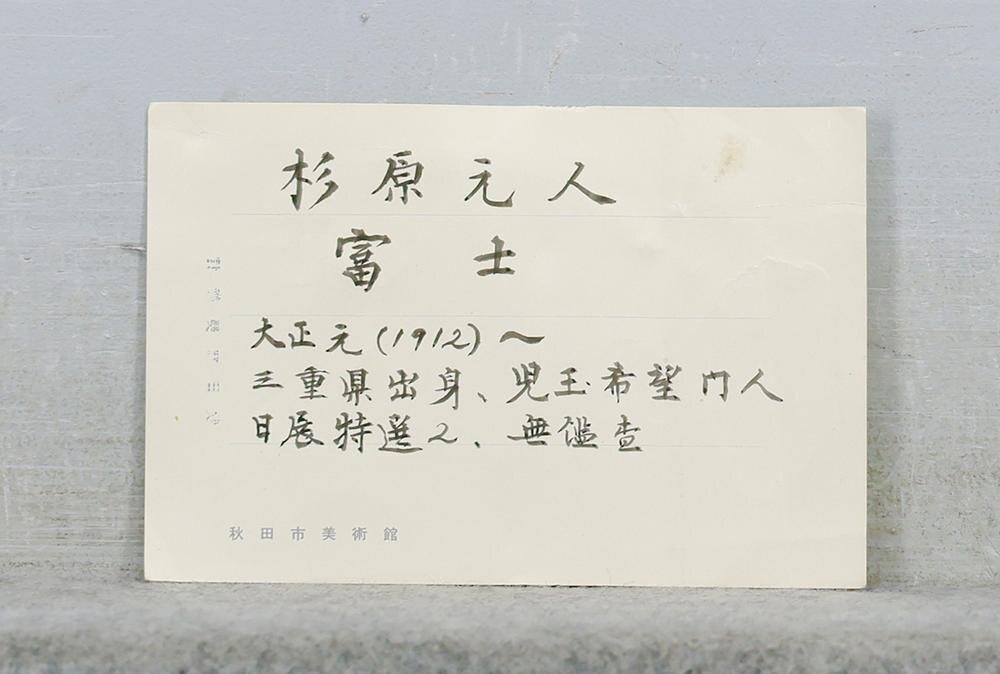 杉原元人
富士
大正元(1912)~
三重県出身、児玉希望門人
日展特選2、無鑑査
秋田市美術館